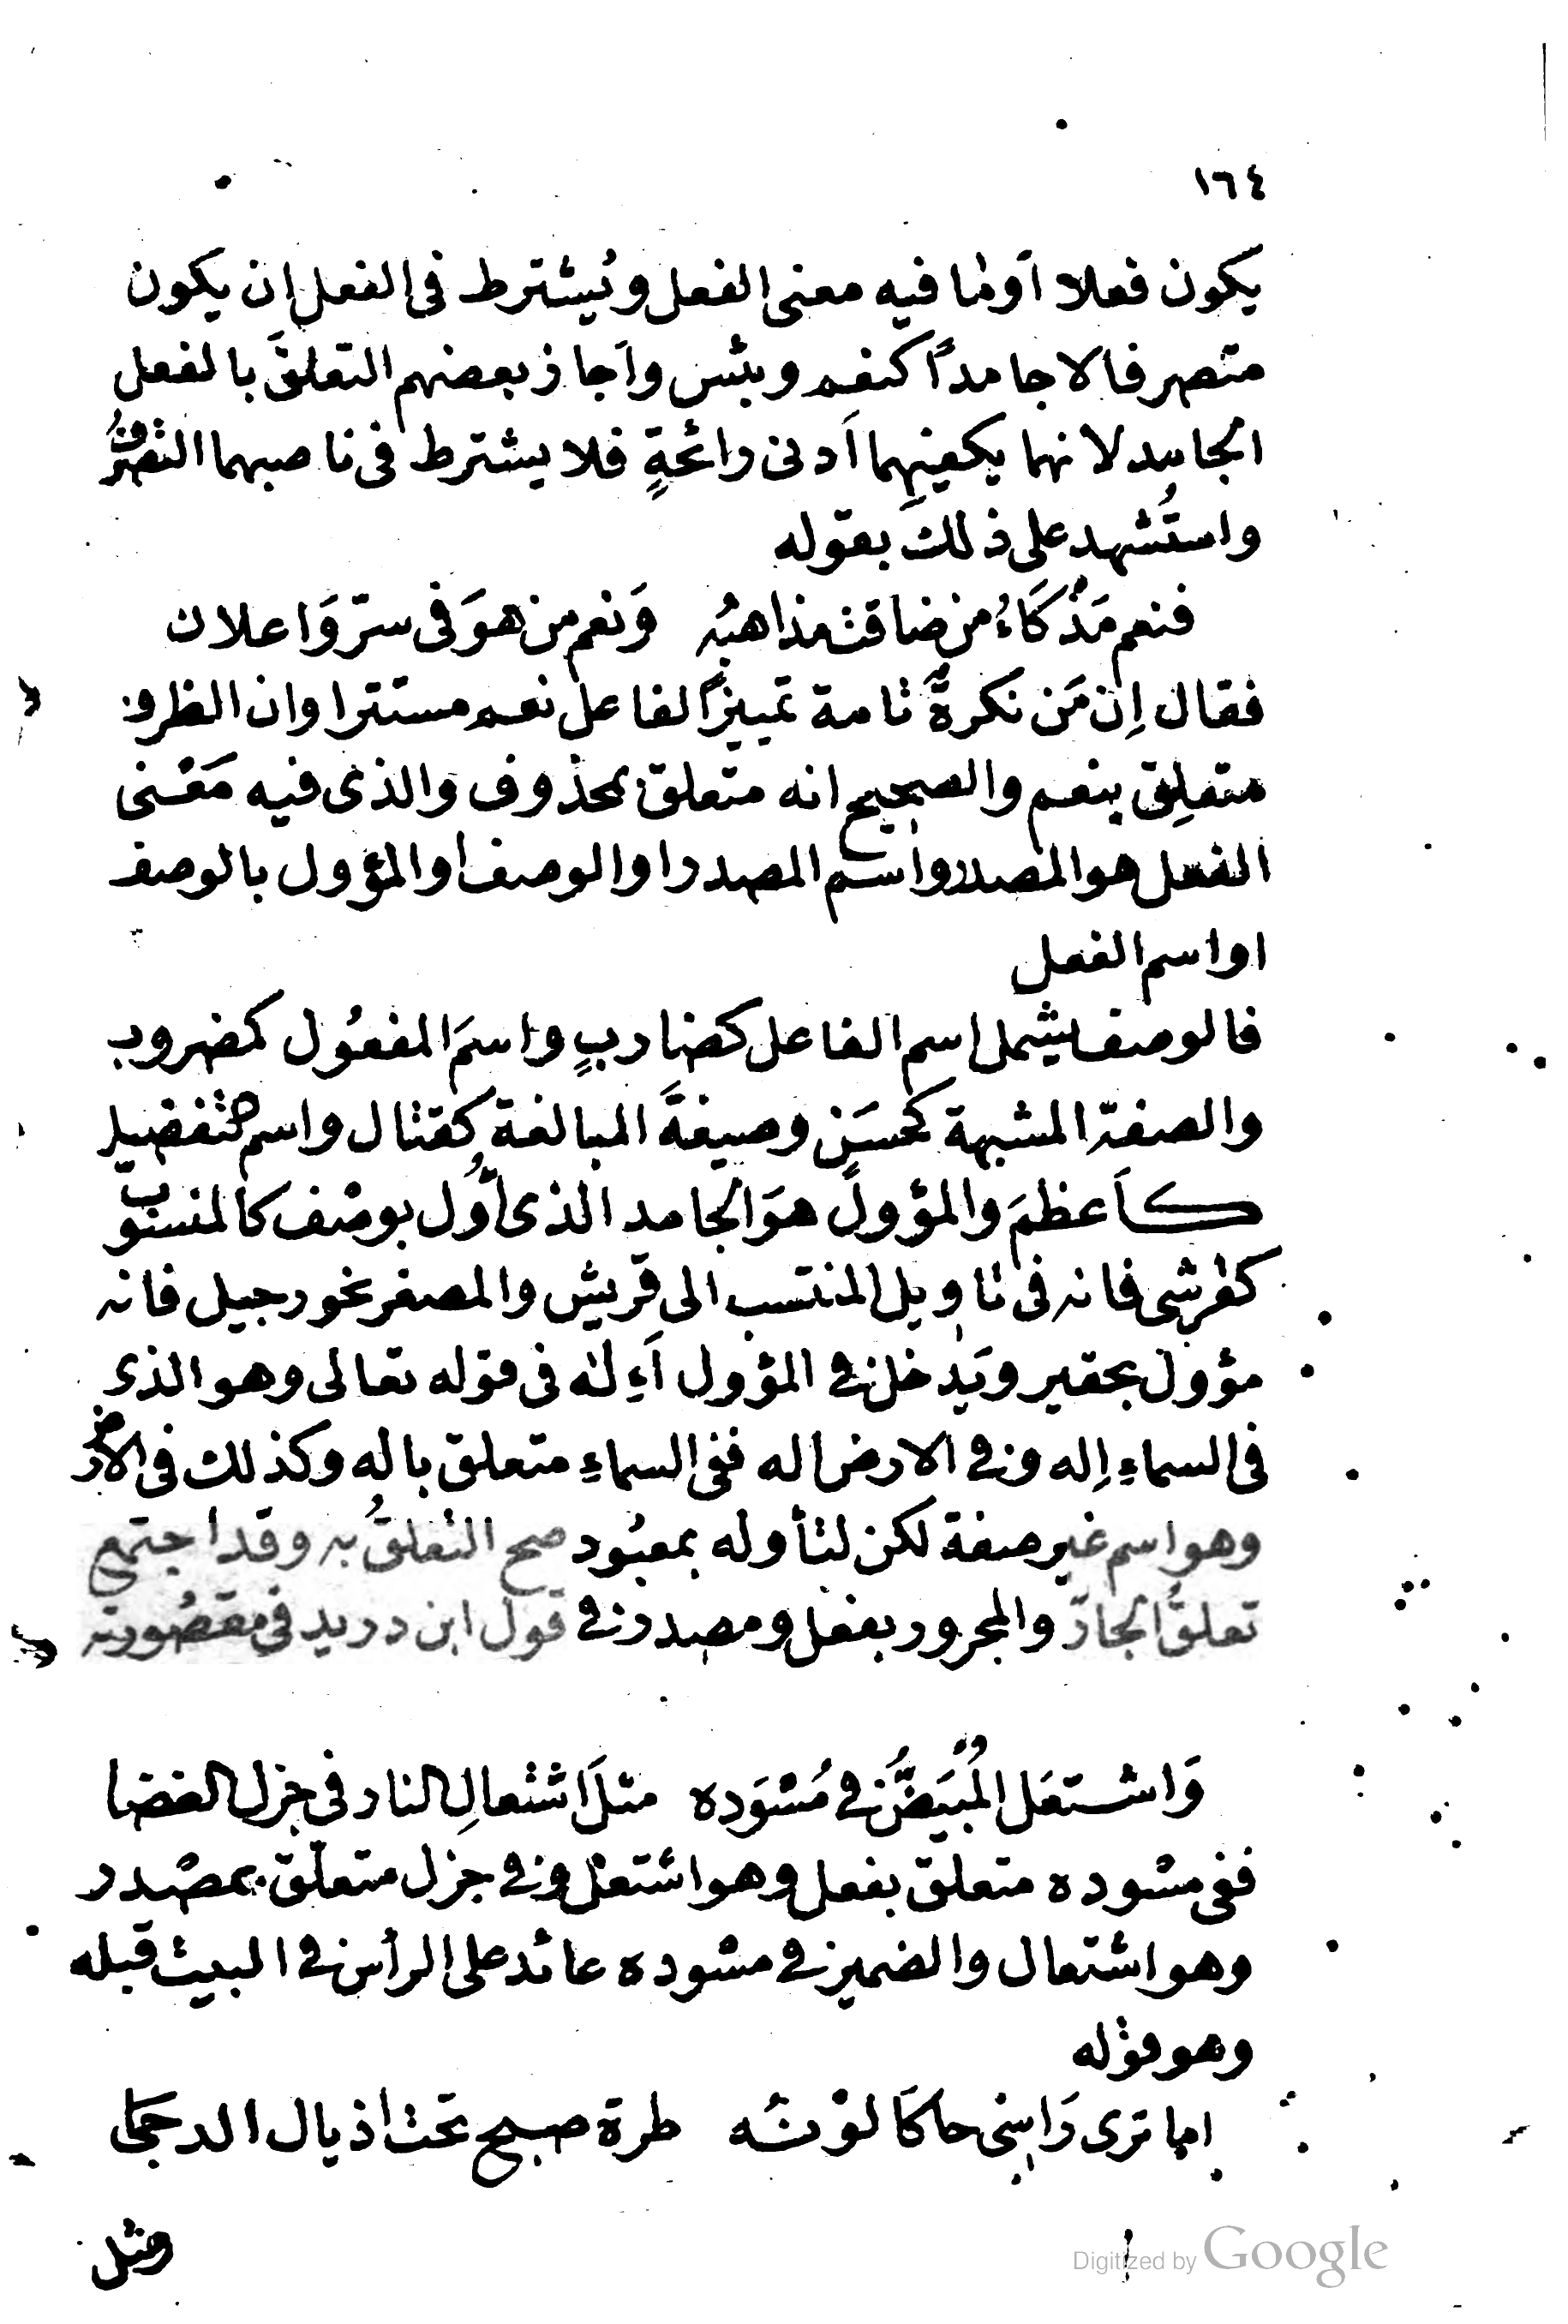 ١٦٤
يكون فعلا اَو ما فيه معنى الفعل ويُشترط فى الفعل ان يكون
متصرفا لا جامداً كنعم وبئس واَجاز بعضهم التعلقَ بالفعل
الجامد لانهما يكفيهِما اَدنى رائحةٍ فلا يشترط فى ناصبهما التصرُّف
واستُشهد على ذلك بقوله
فنعم مَزْكَاءُ من ضاقت مذاهبُه وَنعم من هوَ فى سرّ وَاعلان
فقال اِن مَن نكرةٌ تامة تمييزاً لفاعل نعم مستترا وان الظرف
متعلِق بنعم والصحيح انه متعلق بمحذوف والذى فيه مَعْنى
الفعل هو المصدر واسم المصدر او الوصف او المؤول بالوصف
او اسم الفعل
فالوصف يشمل اسم الفاعل كضاربٍ واسمَ المفعُول كمضروب
والصفة المشبهة كحسَنٍ وصيغةَ المبالغة كقتال واسم التفضيل
كاَعظمَ والمؤول هوَ الجامد الذى أُوّل بوصْف كالمنسوب
كقرشى فانه فى تاويل المنتسب الى قريش والمصغر نحو رجيل فانه
مؤول بحقير ويَدخل فى المؤول اَءِلٰه فى قوله تعالى وهو الذى
فى السماءِ اِله وفى الارض اله ففى السماءِ متعلق باله وكذلك فى الارض
وهو اسم غير صفة لكن لتأوله بمعبُود صح التعلقُ به وقد اجتمع
تعلقُ الجارّ والمجرور بفعل ومصدر فى قول ابن دريد فى مقصُورته
وَاشتعَل المُبيَضُّ فى مُسْوَده مثلَ اشتعالِ النار فى جزل الغضا
ففى مسْوده متعلق بفعل وهو اشتعل وفى جزل متعلّق بمصْدر
وهو اشتعال والضمير فى مسْوده عائد على الرأس فى البيت قبله
وهو قوله
اما ترى رَاسِى حاكَا لوْنُه طرة صبح تحت اذيال الدجىَ
ومثل
Digitized by Google